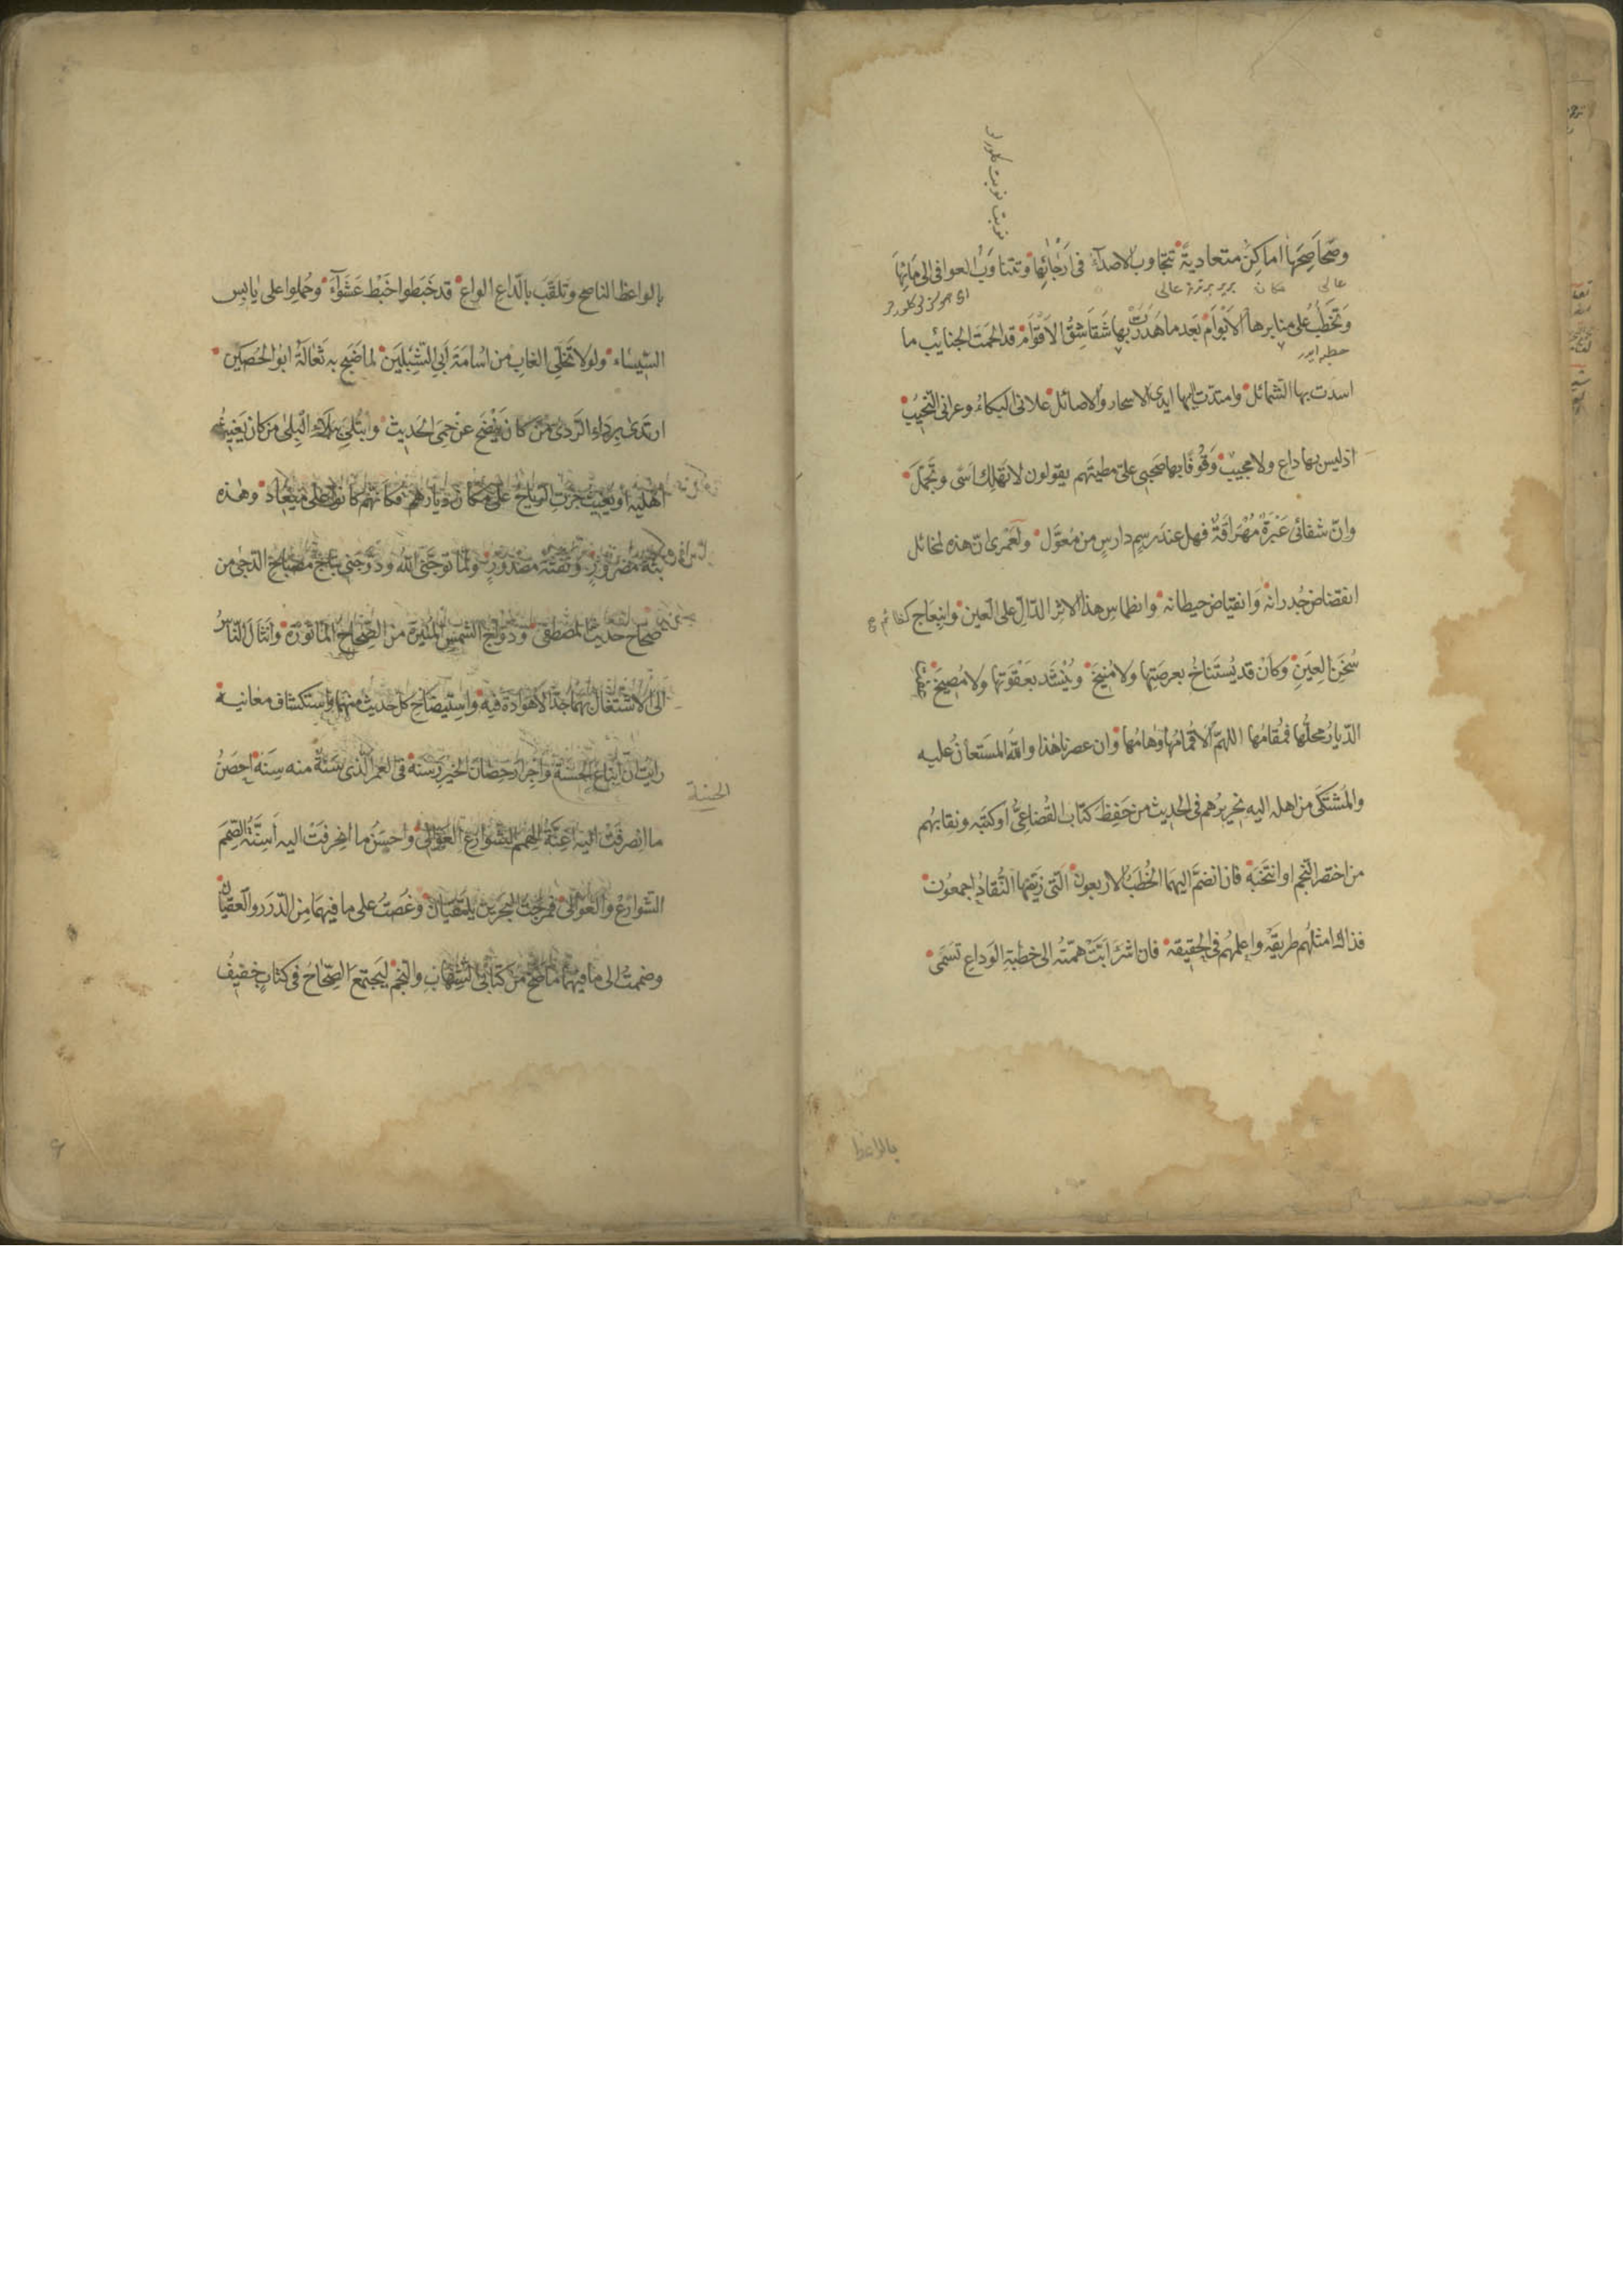 وصَحَاصِحَها اماكِنُ متعاديةً تتجاوب الاصدآءُ فى اَرْجائِها وتتناوَبُ العوافى الى مَائِها
عالى مكان بربرينه عالى
وَتَخطُبُ على منابرها الاَبْوَام بَعد ما هَدَرت بها شَقاشِقُ الاَقْوَام قد الحمَت الجنائب ما
اسدَت بها الشمائل وامتدّت اليها ايدى الاسحار والاصائل علانى البكاءُ وعرانى النحيبُ
اذ ليس بها داعٍ ولا مجيبٌ وقُوفًا بها صَحبى علىّ مطيّهم يقولون لا تَهلِك اسًى وتجمّلَ
وانّ شفائى عَبَرةٌ مُهَراقَةٌ فهل عند رسمٍ دارسٍ من مُعَوَّل ولَعَمْرى انّ هذه لمخائل
انقضاض جُدرانه وَانقياض حيطانه وانطماس هذا الاثر الدّالّ على العين وانبِعَاج
سُخنَ العِينِ وَكاَنْ قد يُستَناخُ بعرصَتِها ولا مُنيخَ ويُنشَد بعَقْوَتها ولا مُصِيخَ عفَت
الدّيارُ محلُّها فمُقامُها اللهمّ الا ثمامُها وهامُها وان عصرنا هٰذا واللّٰه المستعانُ عليه
والمشتكى من اهله اليه نِحريرُهم فى الحديث من حَفِظَ كتابَ القُضاعِىّ او كتبَه ونقابهُم
من اختصر النجم او انتخَبَه فان انضمّ اليهما الخُطَبُ الاربعون الّتى زيّفها النُّقادُ اجمعون
فذاك امثلهُم طريقةً واعلمهُم فى الحقيقه فان اشرَأبّتْ همّتُه الى خطبةِ الوَداعِ تسَمّى
بالواعظ
بالواعظ الناصح وتلقّبَ بالدّاع الواع قد خَبَطوا خَبْط عَشْوَآءَ وحُملوا على يابس
السِّيساء ولولا تخَلّى الغابِ من اُسامَةَ اَبى الشِّبْلَين لما ضَبَح به ثُعالَةُ ابوالحُصَين
ارتدى برداءِ الرّدى مَن كان يَنضَح عن حِمى الحديث وابتُلِىَ ببلاءِ البِلى من كان يَغيث
اَهليه او يُغيث جَرَتِ الرّياح على مكان ديارهم فكاَنّهم كانوا على ميعَاد وهٰذه
بثّةُ مَضرورٍ ونَفثة مصدُورٍ ولمّا توجَّنى اللّٰه ودَوّجَنى بتاج مصباح الدّجى من
صحاح حديث المصطفى ودُوّاج الشمس المنيرة من الصِّحاح المأثورة وانثال النّاسُ
الى الاشتغال بهما جدّا لا هَوَادَة فيه واستيضاح كل حديث منهما واستكشاف معانيه
رايت انّ اتباع الحسَنة واجرار حصان الخير رسنه فى العمر الذى سَنةٌ منه سِنة احصَنُ
الحسنة
ما انصرفَتْ اليه اعِنّةُ الهمم الشّوارع العَوالى واحسَنُ ما انحرفَتْ اليه اَسِنّةُ الصِّمَم
الشّوارع والعَوالى فمرجتُ البَحرَين يلتقيان وغصتُ على ما فيهما من الدّرَر والعقيان
وضممتُ الى ما فيهما ما صَحّ من كتابَى الشِّهاب والنجم ليجتمعَ الصِّحَاحُ فى كتابٍ خفيف